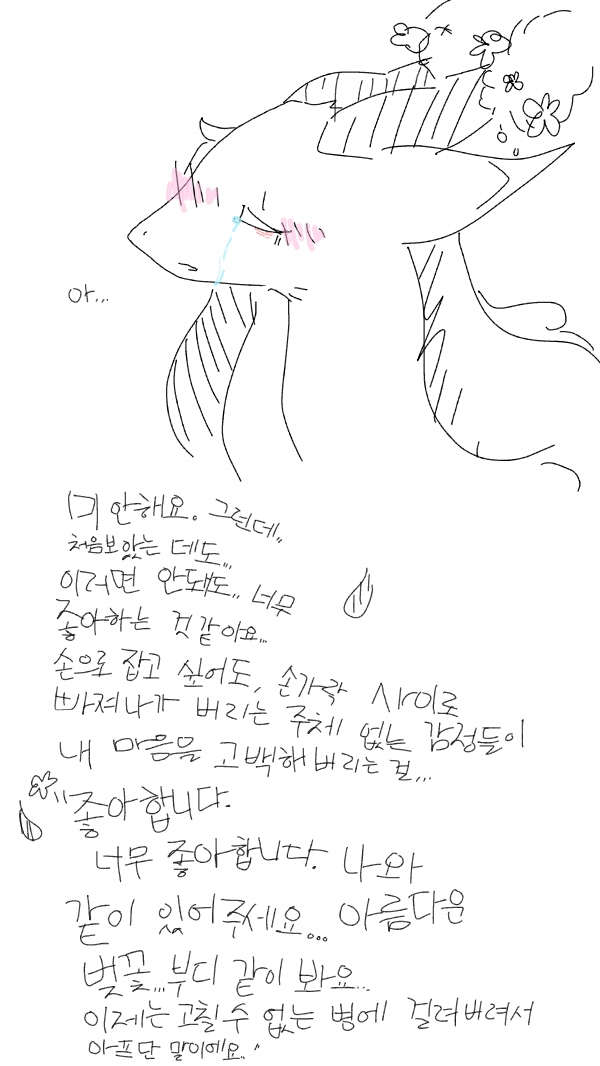 아...
미안해요. 그런데..
처음보았는 데도...
이러면 안돼도.. 너무
좋아하는 것 같아요...
손으로 잡고 싶어도, 손가락 사이로
빠져나가 버리는 주체 없는 감정들이
내 마음을 고백해버리는 걸...
좋아합니다.
너무 좋아합니다. 나와
같이 있어주세요... 아름다운
벚꽃... 부디 같이 봐요...
이제는 고칠 수 없는 병에 걸려버려서
아프단 말이에요..